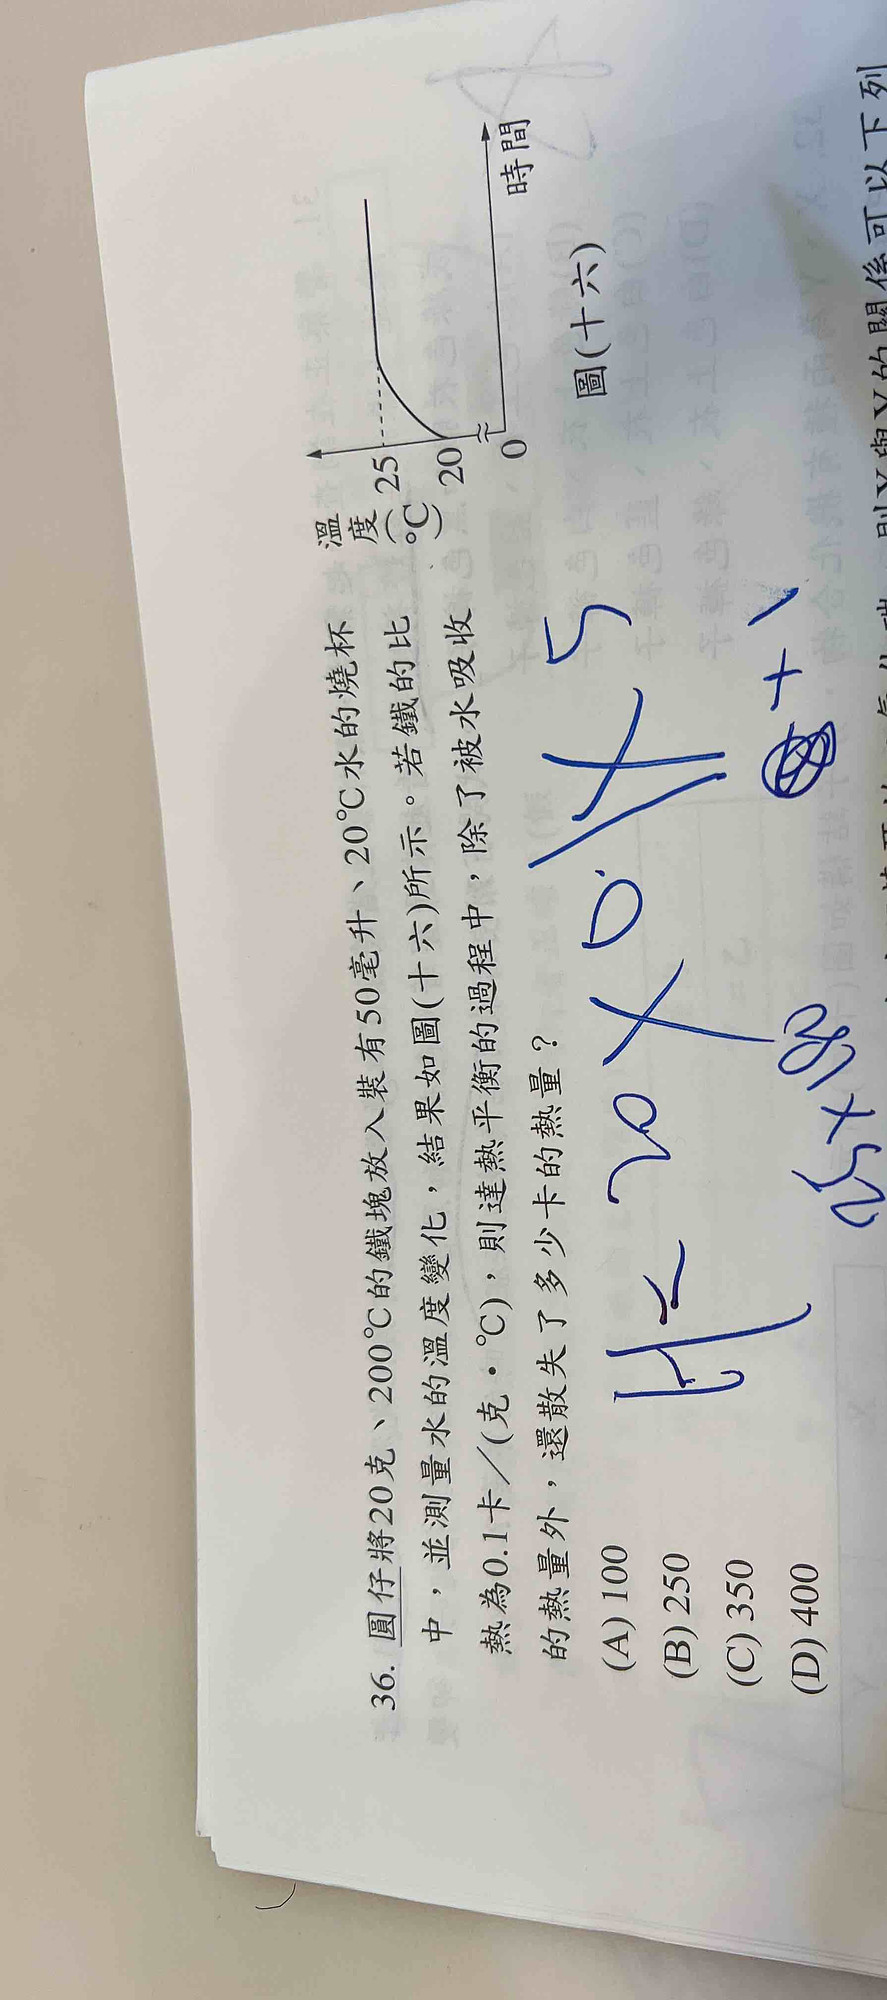 36. 圓仔將20克、200℃的鐵塊放入裝有50毫升、20℃水的燒杯
中，並測量水的溫度變化，結果如圖(十六)所示。若鐵的比
熱為0.1卡／(克・℃)，則達熱平衡的過程中，除了被水吸收
的熱量外，還散失了多少卡的熱量？
(A) 100
(B) 250
(C) 350
(D) 400
溫度(℃)
25
20
0
時間
圖(十六)
H= 20×0.1×5
的關係可以下列